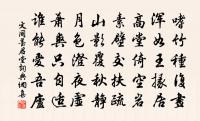 嗜竹種復畫
渾如王掾居
高堂倚空岩
素壁交扶疏
山影覆秋靜
月色澄夜虛
蕭爽只自適
誰能愛吾廬
文同墨君堂詞典網集